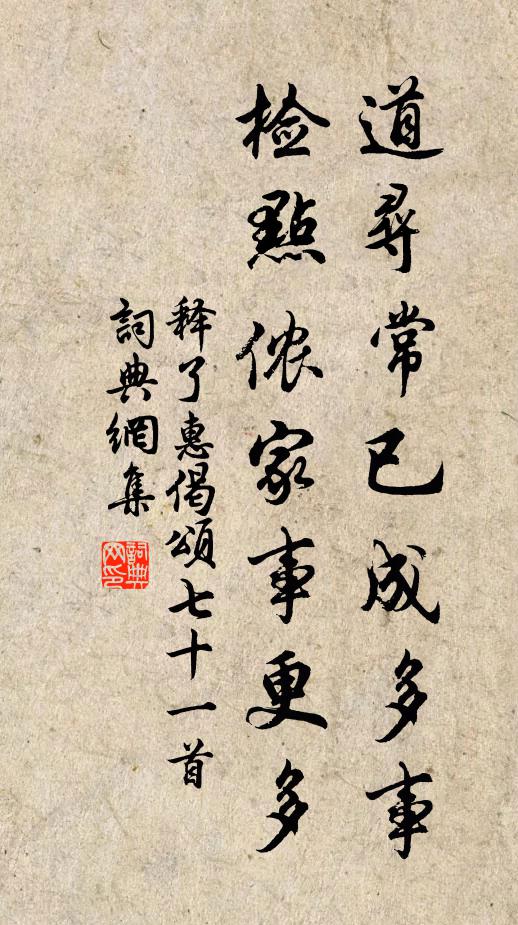 道尋常已成多事
檢點侬家事更多
释了惠偈頌七十一首
詞典網集
詞典
网印